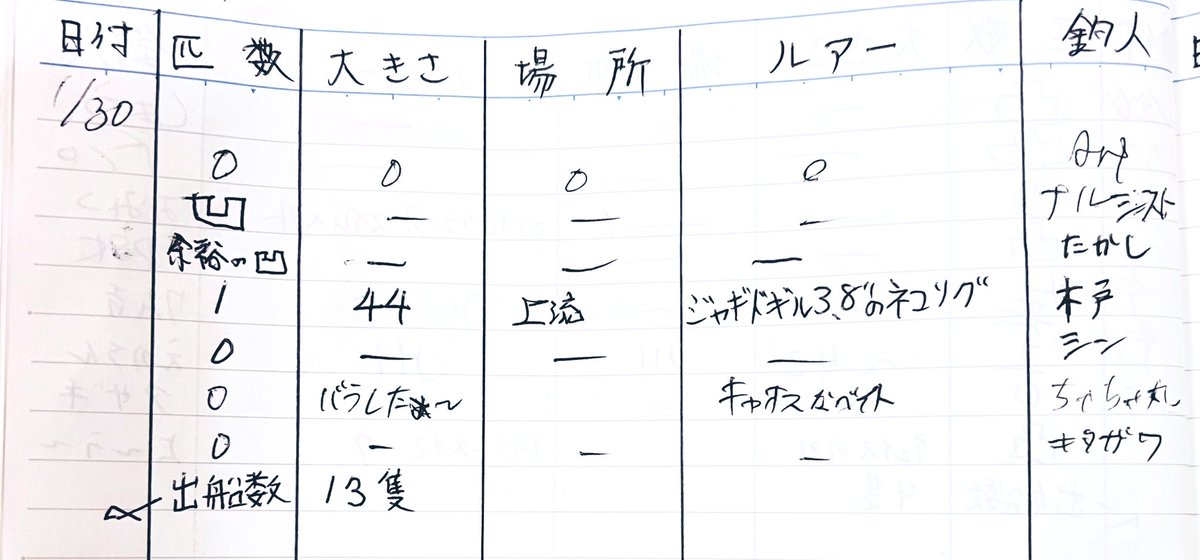 日付 匹数 大きさ 場所 ルアー 釣人
1/30
0 0 0 0
凹 — — — ナルジスト
余裕の凹 — — — たかし
1 44 上流 ジャギドギル3.8"のネコリグ 木戸
0 — — — シン
0 バラした〜 キャオスなベイト ちゃちゃ丸
0 — — — キタガワ
出船数 13隻